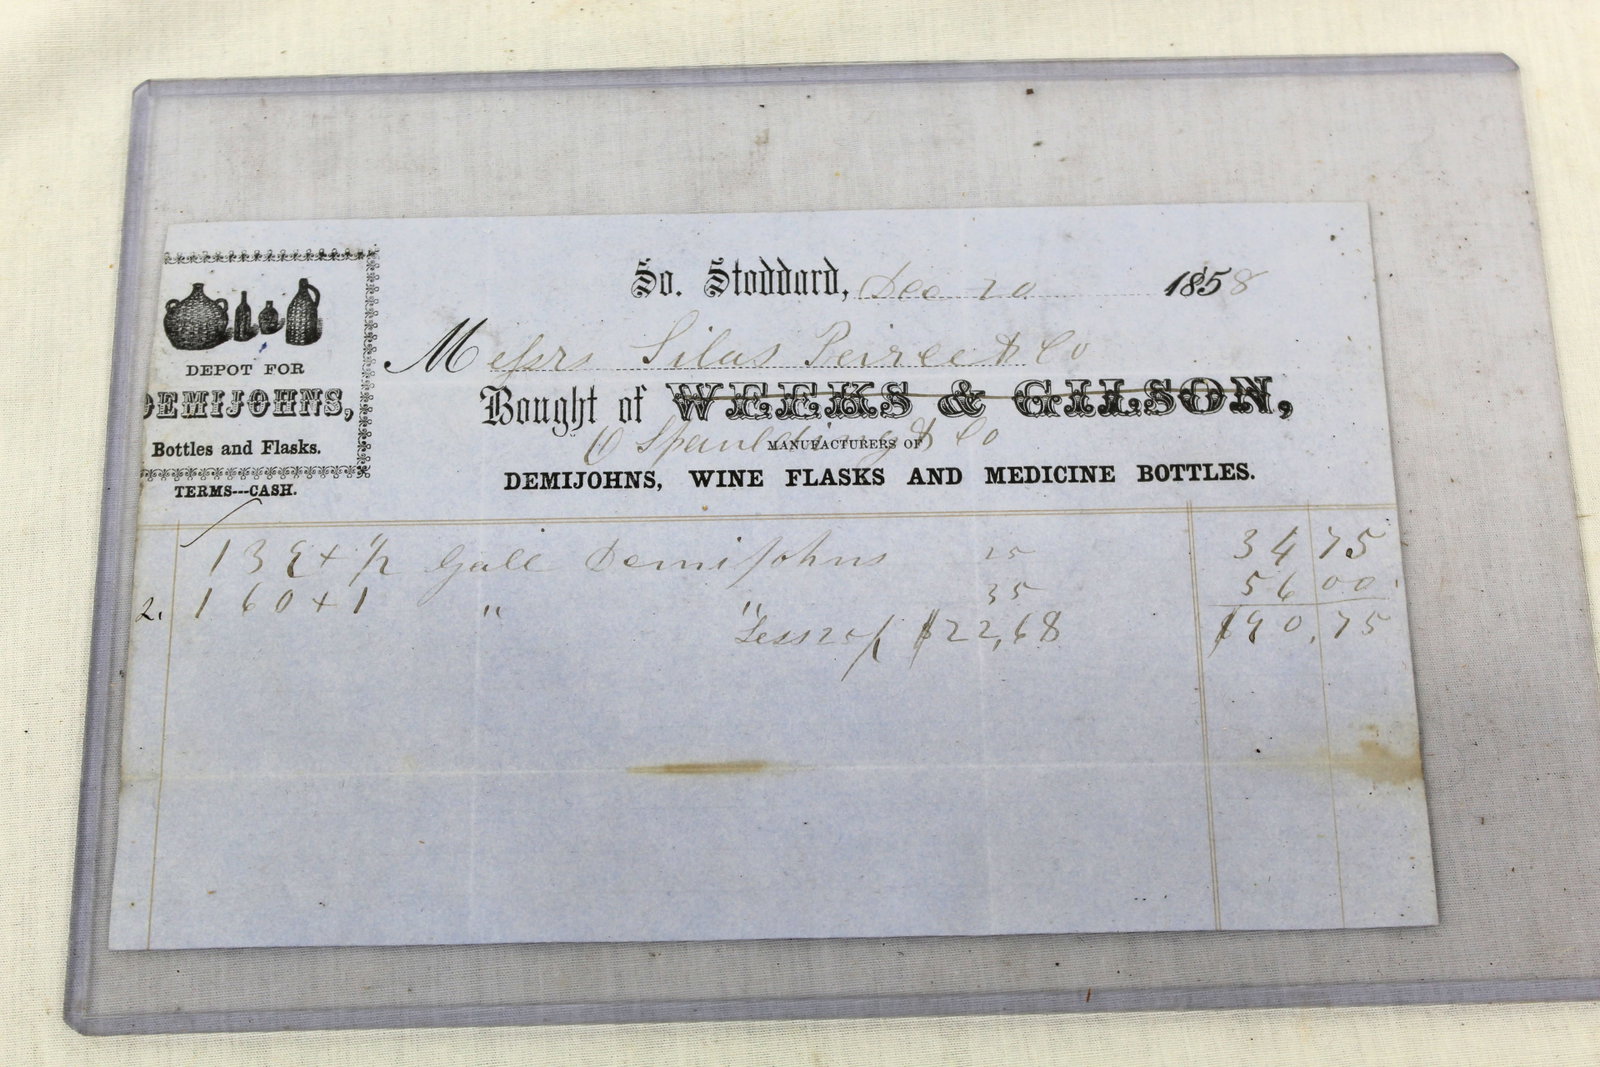 So. Stoddard, Dec 20 1858
Messrs Silas Peirce & Co
Bought of WEEKS & GILSON,
C Spaulding & Co
MANUFACTURERS OF
DEMIJOHNS, WINE FLASKS AND MEDICINE BOTTLES.
DEPOT FOR
DEMIJOHNS,
Bottles and Flasks.
TERMS---CASH.
139 + ½ Gall Demijohns 25 34 75
2. 160 + 1 " " 35 56 00
Less $22,68 $90,75